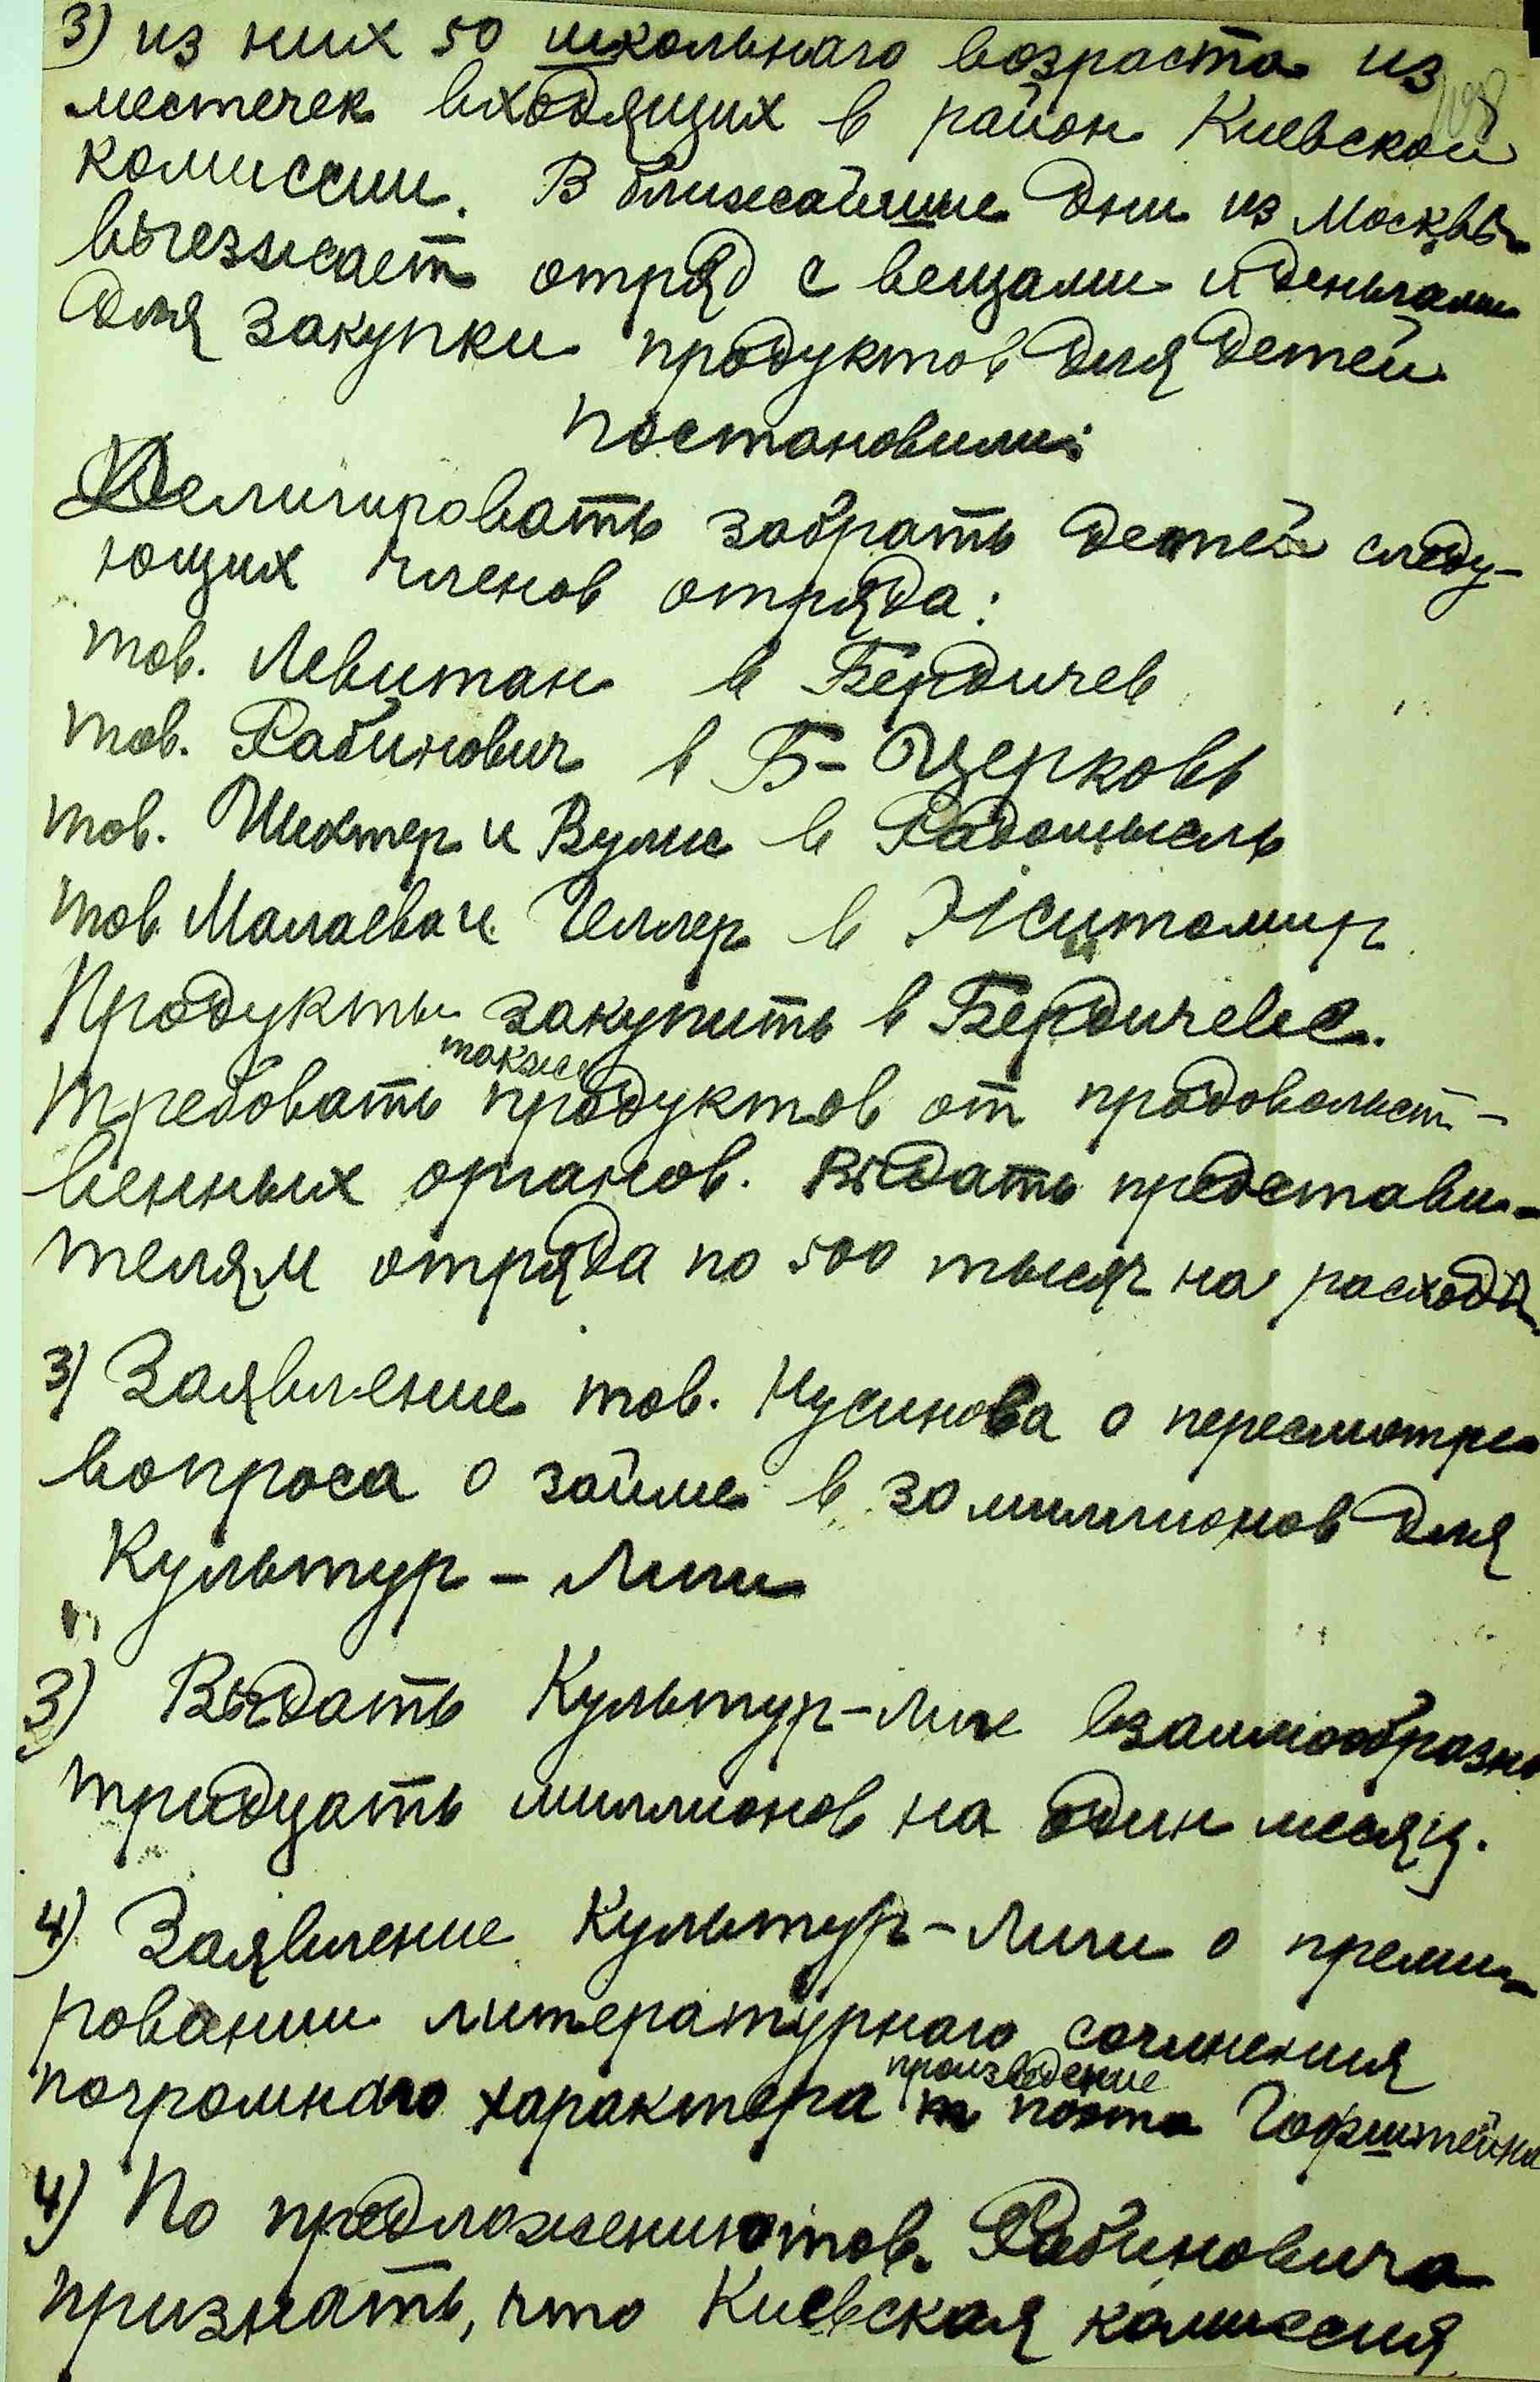 3) из них 50 школьнаго возраста из
местечек входящих в район Киевской
комиссии. В ближайшие дни из Москвы
выезжает отряд с вещами и деньгами
для закупки продуктов для детей
постановили:
Делигировать забрать детей следу-
ющих членов отряда:
тов. Левитан в Бердичев
тов. Рабинович в Б-Церковь
тов. Шихтер и Вулис в Радомысль
тов. Малаева и Геллер в Житомир
Продукты закупить в Бердичеве.
также
требовать продуктов от продовольст-
венных органов. Выдать представи-
телям отряда по 500 тысяч на расходы
3) Заявление тов. Нусинова о пересмотре
вопроса о займе в 30 миллионов для
Культур-Лиги
3) Выдать Культур-Лиге взаимообразно
тридцать миллионов на один месяц.
4) Заявление Культур-Лиги о преми-
ровании литературнаго сочинения
произведение
погромнаго характера поэта Гофштейна
4) По предложению тов. Рабиновича
признать, что Киевская комиссия